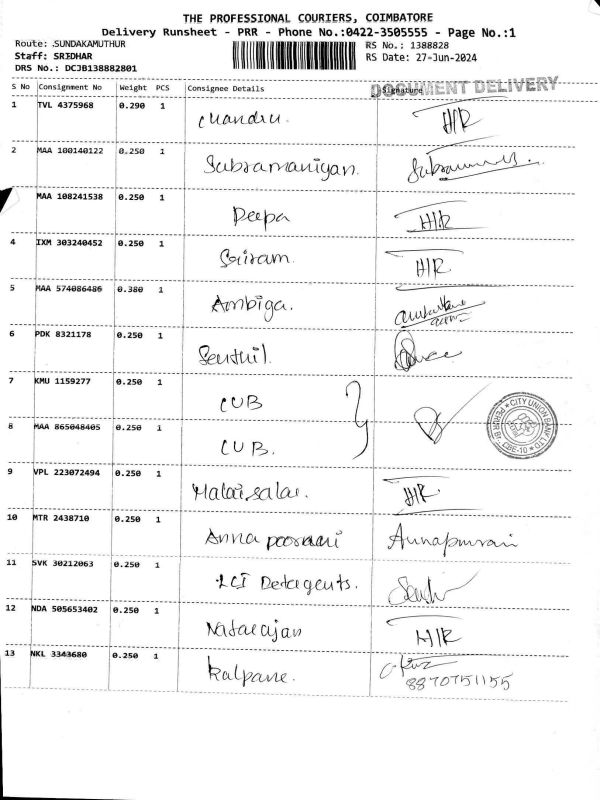 THE PROFESSIONAL COURIERS, COIMBATORE
Delivery Runsheet - PRR - Phone No.:0422-3505555 - Page No.:1
Route: .SUNDAKAMUTHUR RS No.: 1388828
Staff: SRIDHAR RS Date: 27-Jun-2024
DRS No.: DCJB138882801
DOCUMENT DELIVERY
S No Consignment No Weight PCS Consignee Details Signature
1 TVL 4375968 0.290 1 Chandru. H/R
2 MAA 100140122 0.250 1 Subramaniyan.
MAA 108241538 0.250 1 Deepa H/R
4 IXM 303240452 0.250 1 Sairam H/R
5 MAA 574086486 0.380 1 Ambiga.
6 PDK 8321178 0.250 1 Senthil.
7 KMU 1159277 0.250 1 CUB
8 MAA 865048405 0.250 1 CUB.
CITY UNION BANK LTD
PERUR BR. CBE-10
9 VPL 223072494 0.250 1 Malaisalai. H/R.
10 MTR 2438710 0.250 1 Anna poorani Annapurani
11 SVK 30212063 0.250 1 LCI Detagents.
12 NDA 505653402 0.250 1 Natarajan H/R
13 NKL 3343680 0.250 1 Kalpane.
8870751155